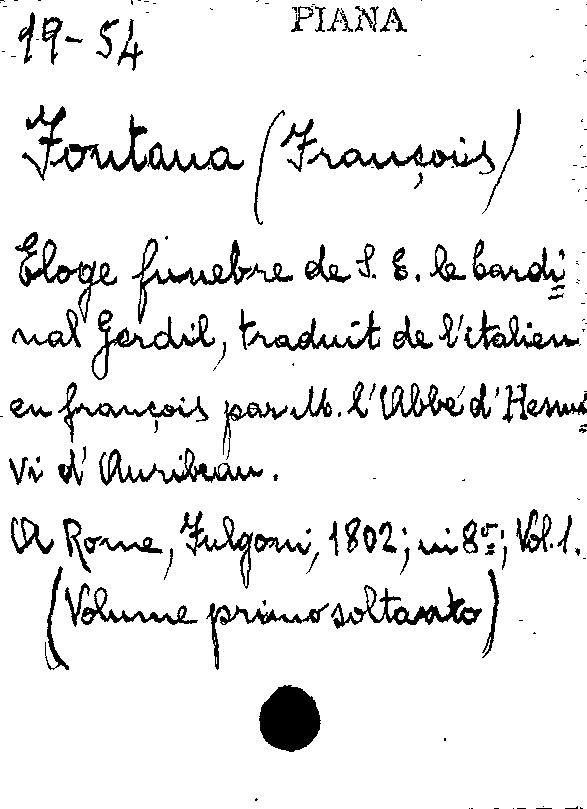 PIANA
19-54
Fontana (François)
Eloge funebre de S. E. le Cardi=
nal Gerdil, traduit de l'italien
en françois par M. l'Abbé d'Hesmi=
vi d'Auribeau.
A Rome, Fulgoni, 1802; in 8º; Vol. 1.
(Volume primo soltanto)